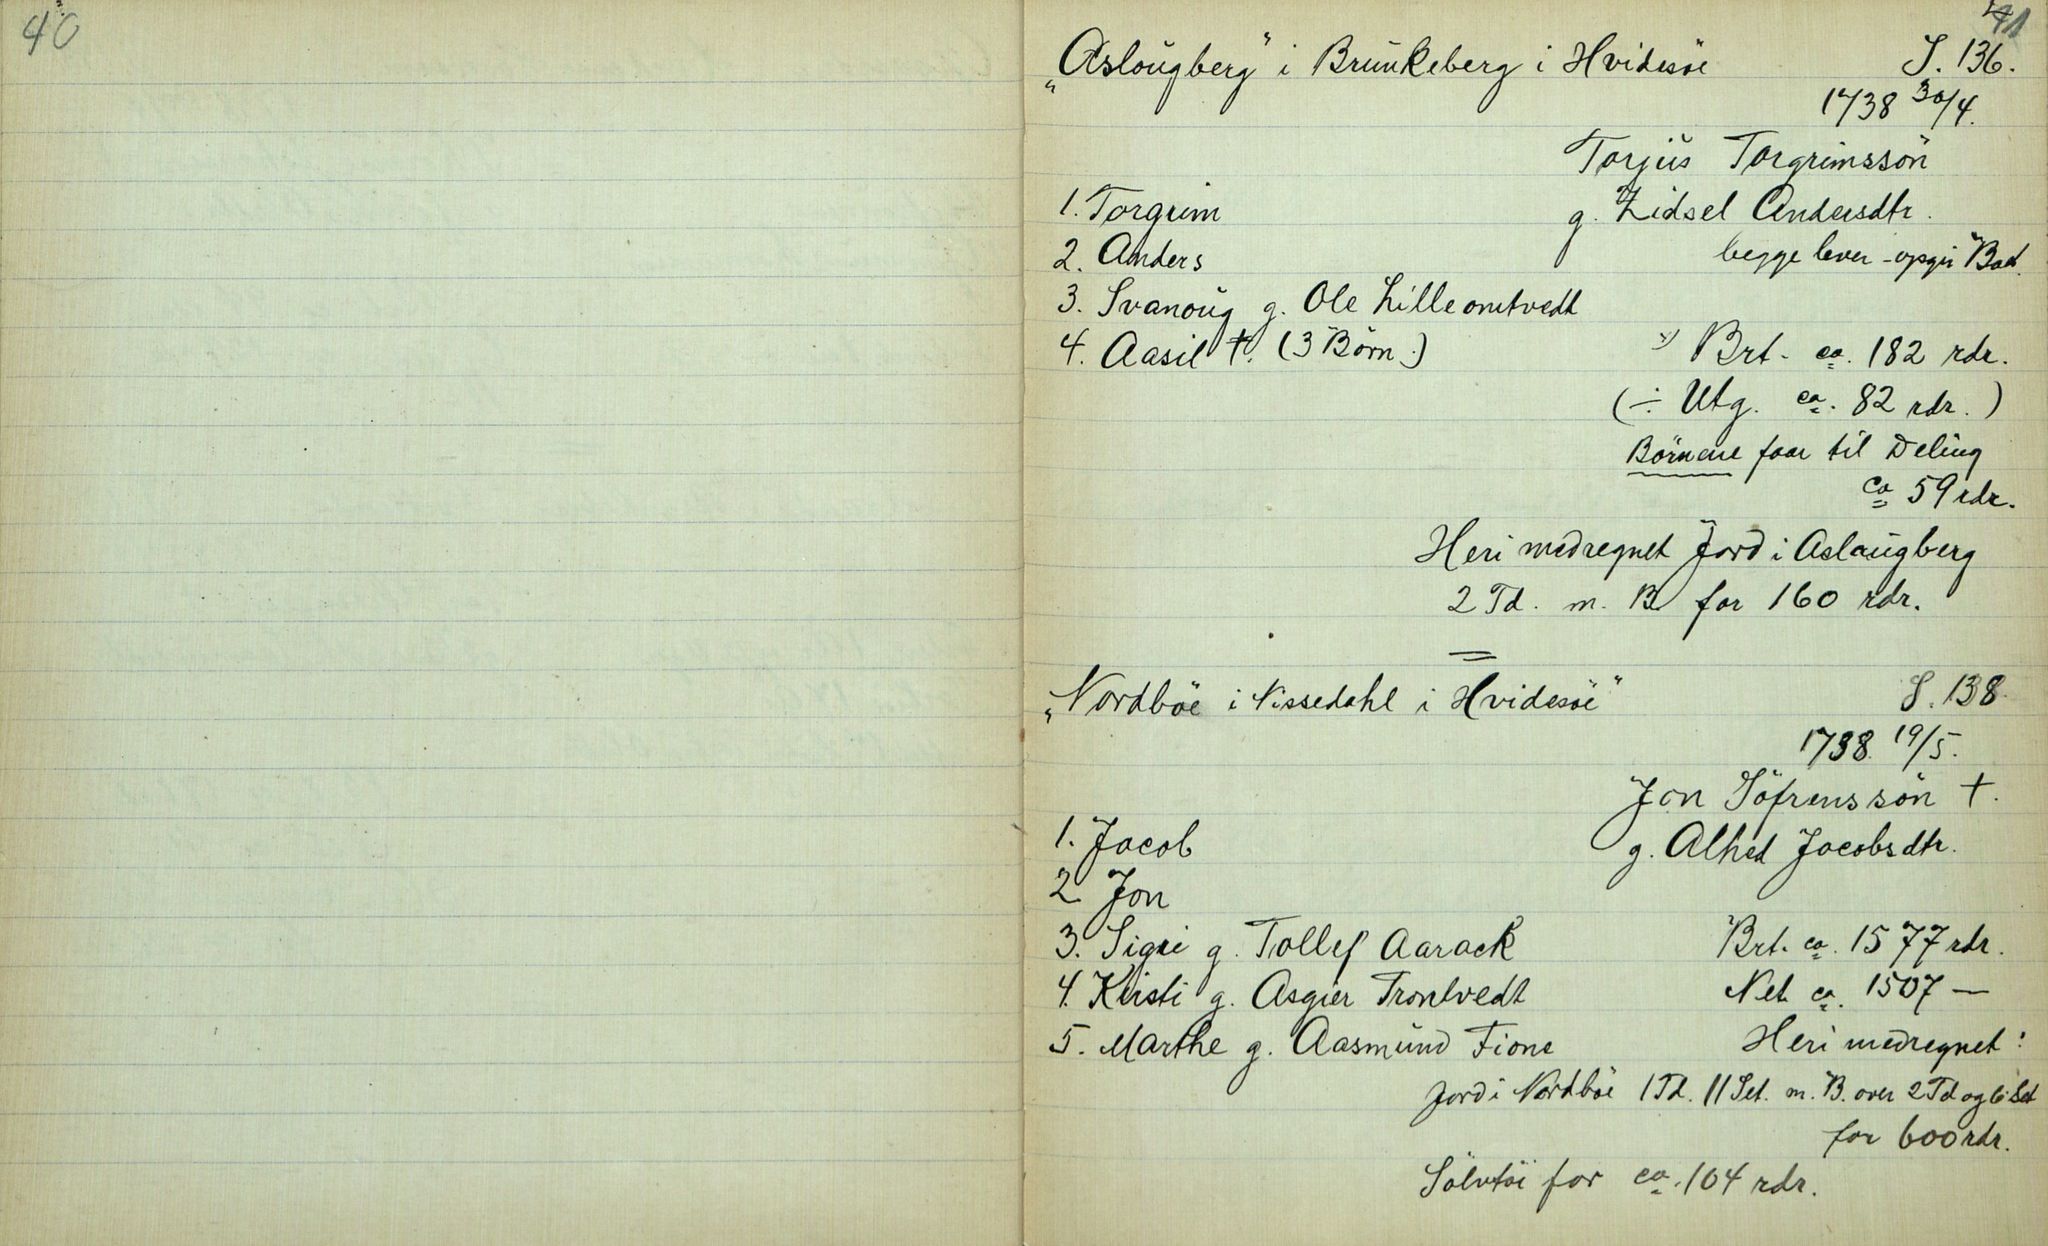 40
41
"Aslougberg" i Brunkeberg i Hvidesöe S. 136.
1738 30/4.
Torjus Torgrimssön
1. Torgrim g. Zidsel Andersdtr.
2. Anders begge lever - opgir Boet.
3. Svanoug g. Ole Lilleomtvedt
4. Aasil †. (3 Börn.) Brt. ca. 182 rdr.
(÷ Utg. ca. 82 rdr.)
Börnene faar til Deling
ca 59 rdr.
Heri medregnet Jord i Aslaugberg
2 Td. m. B for 160 rdr.
"Nordböe i Nissedahl i Hvidesöe" S. 138.
1738 19/5.
Jon Söfrenssön †.
1. Jacob g. Alhed Jacobsdtr.
2 Jon
3. Sigri g. Tollef Aarack Brt. ca. 1577 rdr.
4. Kirsti g. Asgier Trontvedt Net. ca. 1507 —
5. Marthe g. Aasmund Fione Heri medregnet:
Jord i Nordböe 1 Td. 11 Set. m. B. over 2 Td og 6 Set
for 600 rdr.
Sölvtöi for ca. 104 rdr.